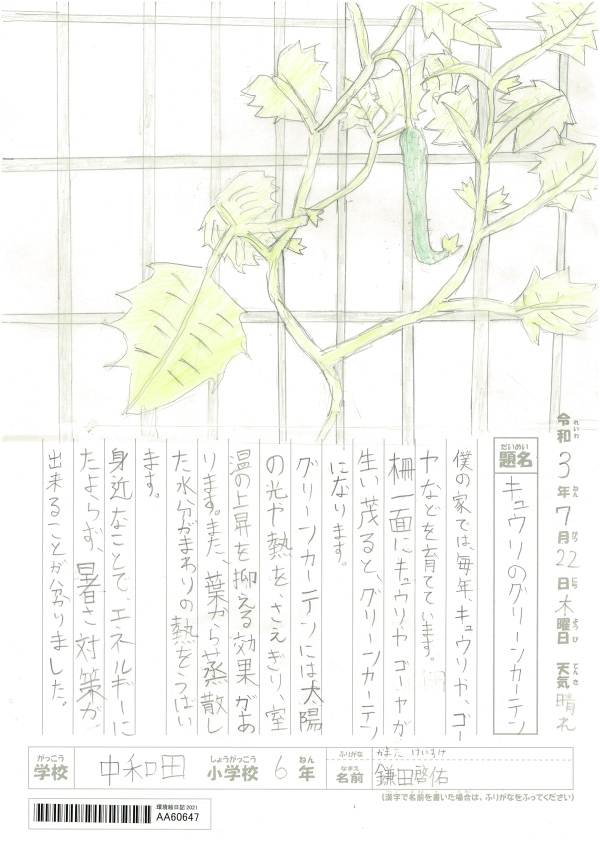 令和3年7月22日木曜日 天気 晴れ
れいわ ねん がつ にち ようび てんき
だいめい
題名 キュウリのグリーンカーテン
僕の家では、毎年、キュウリや、ゴー
ヤなどを育てています。
柵一面にキュウリ、ヤ ゴーヤが
生い茂ると、グリーンカーテン
になります。
グリーンカーテンには太陽
の光や熱を、さえぎり、室
温の上昇を抑える効果があ
ります。また、葉から蒸散し
た水分がまわりの熱をうばい
ます。
身近なことで、エネルギーに
たよらず、暑さ対策が
出来ることが分かりました。
がっこう しょうがっこう ねん
学校 中和田 小学校 6年
ふりがな かまた けいすけ
なまえ
名前 鎌田啓佑
(漢字で名前を書いた場合は、ふりがなをふってください)
環境絵日記 2021
AA60647